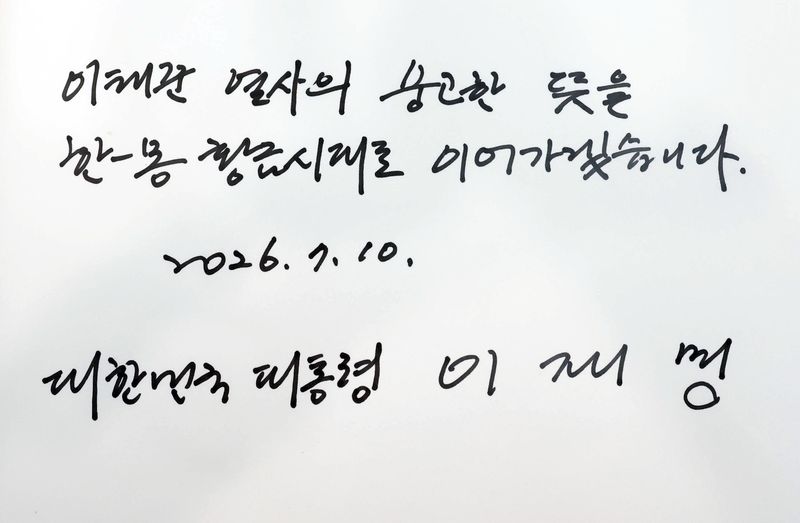 이태준 열사의 숭고한 뜻을
한-몽 황금시대로 이어가겠습니다.
2026. 7. 10.
대한민국 대통령 이재명